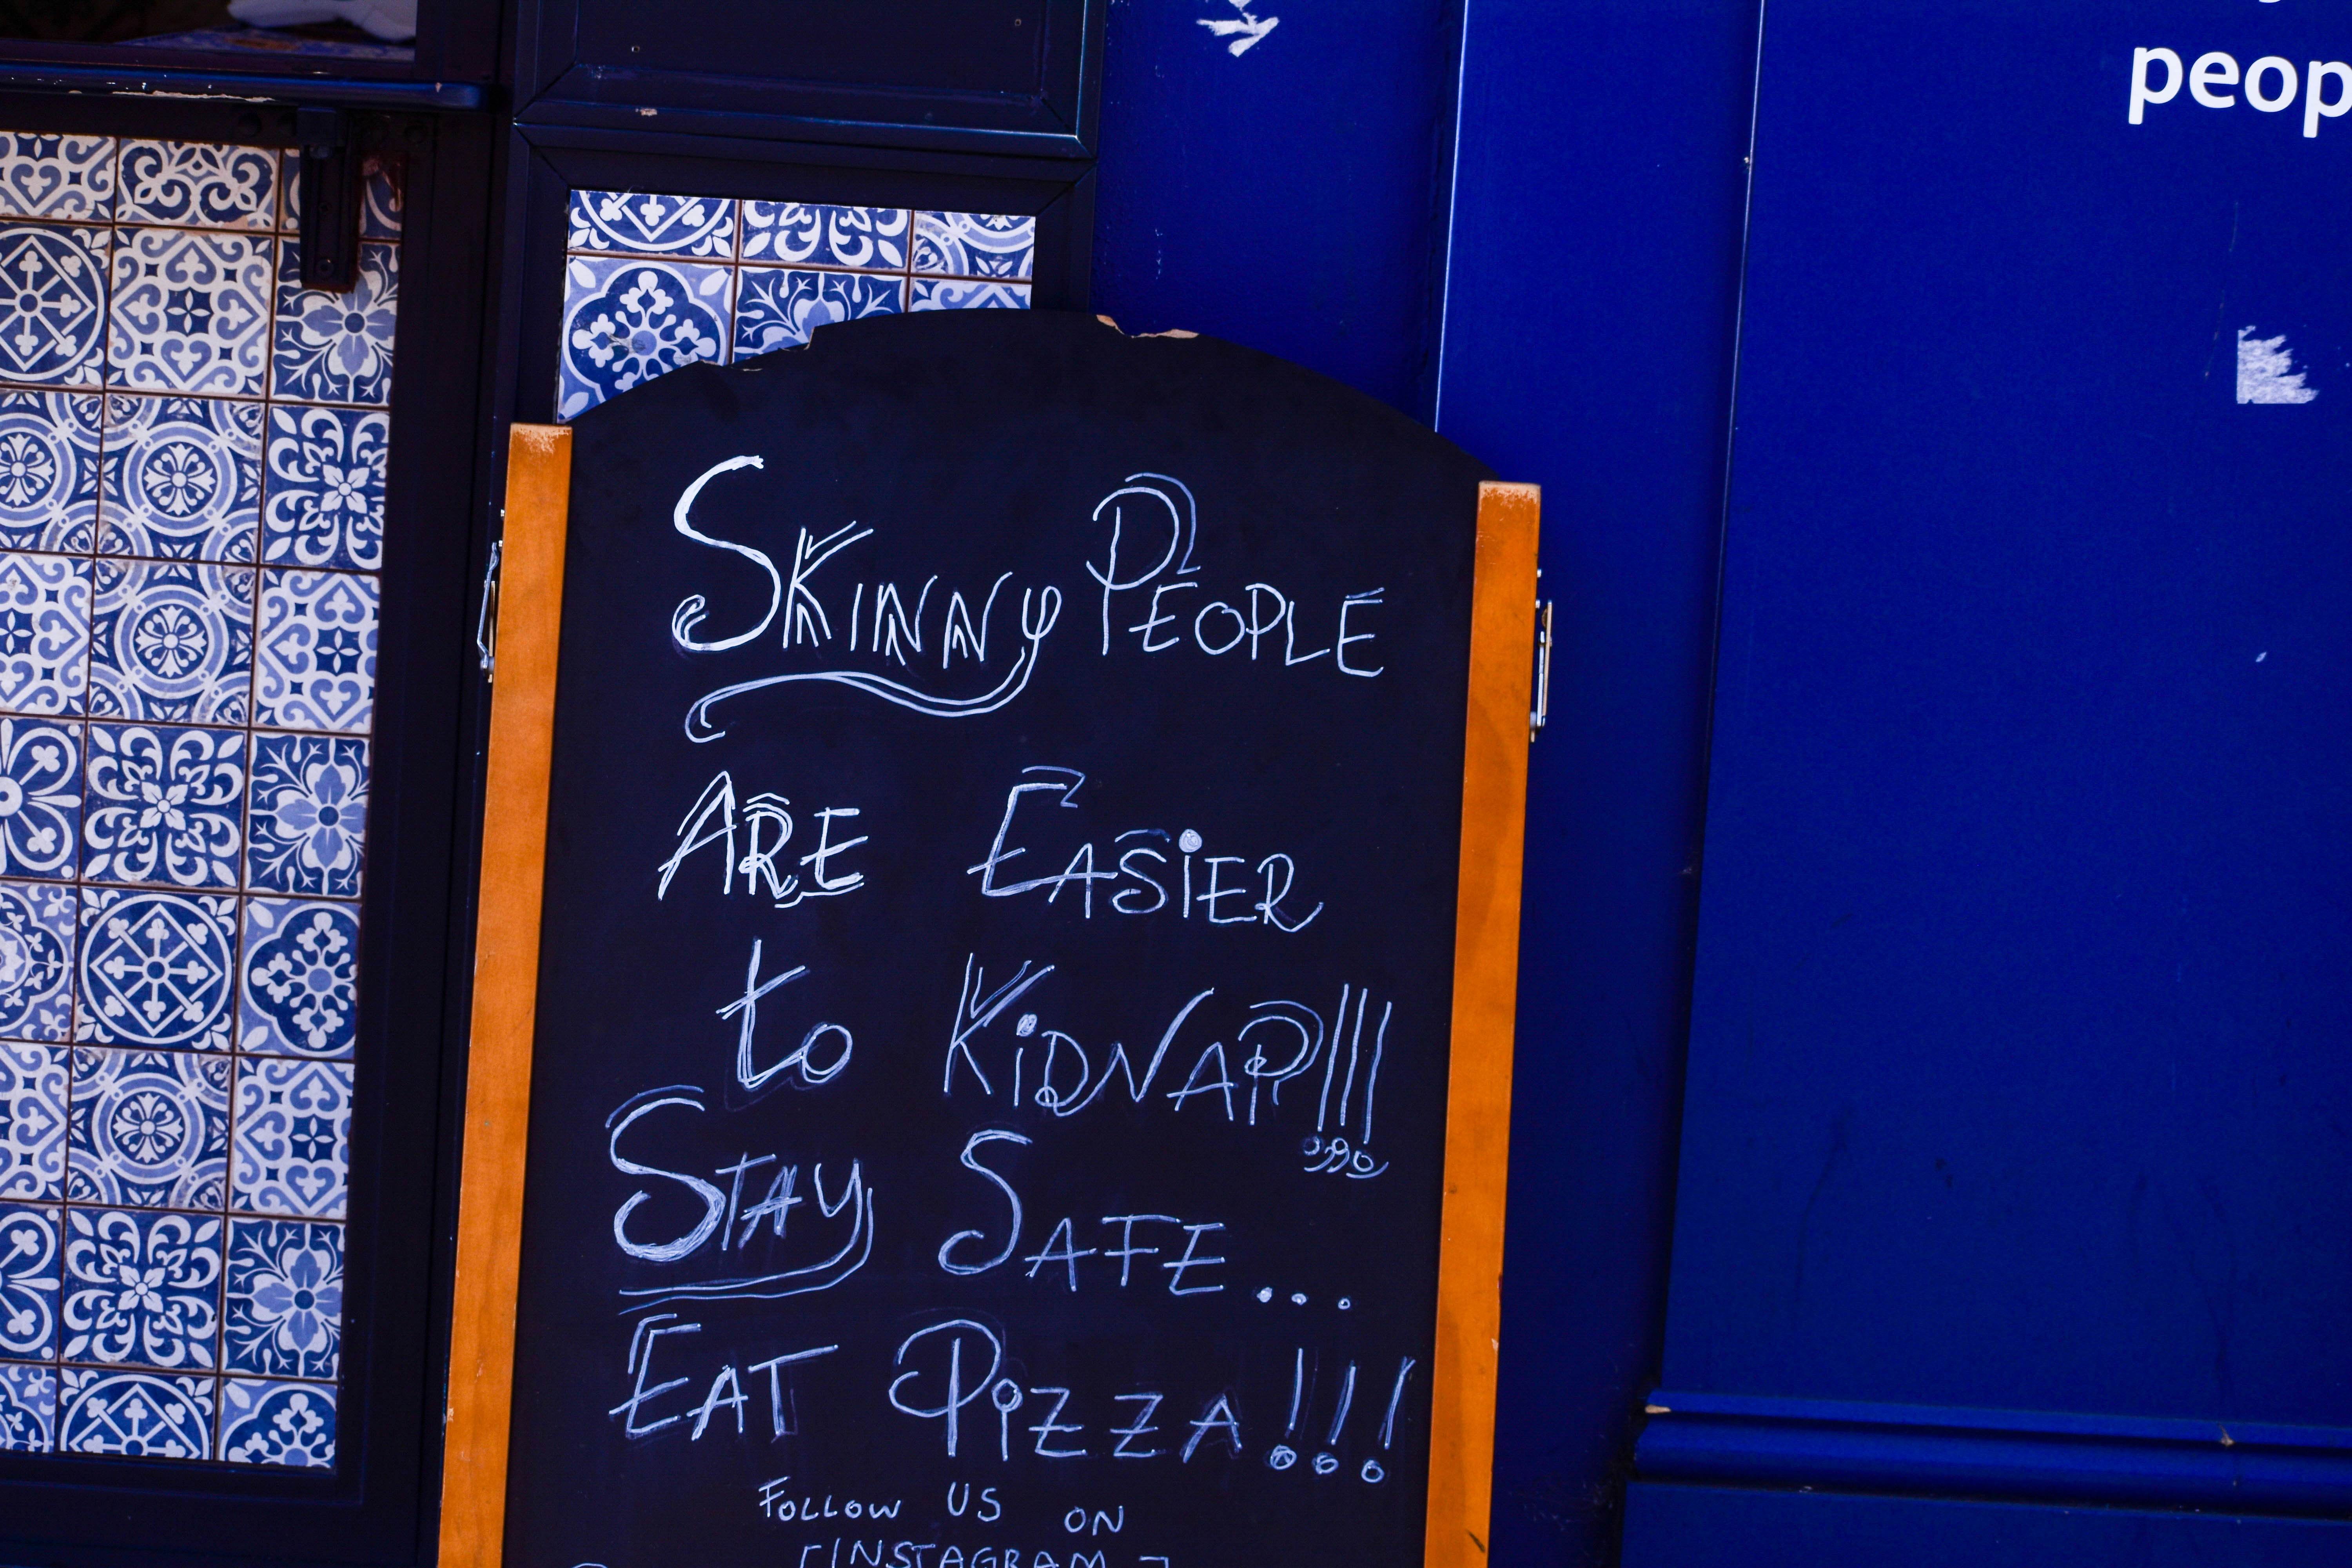 SKINNY PEOPLE
ARE EASiER
to KiDNAP!!!
STAY SAFE...
EAT PiZZA!!!
FOLLOW US ON
INSTAGRAM